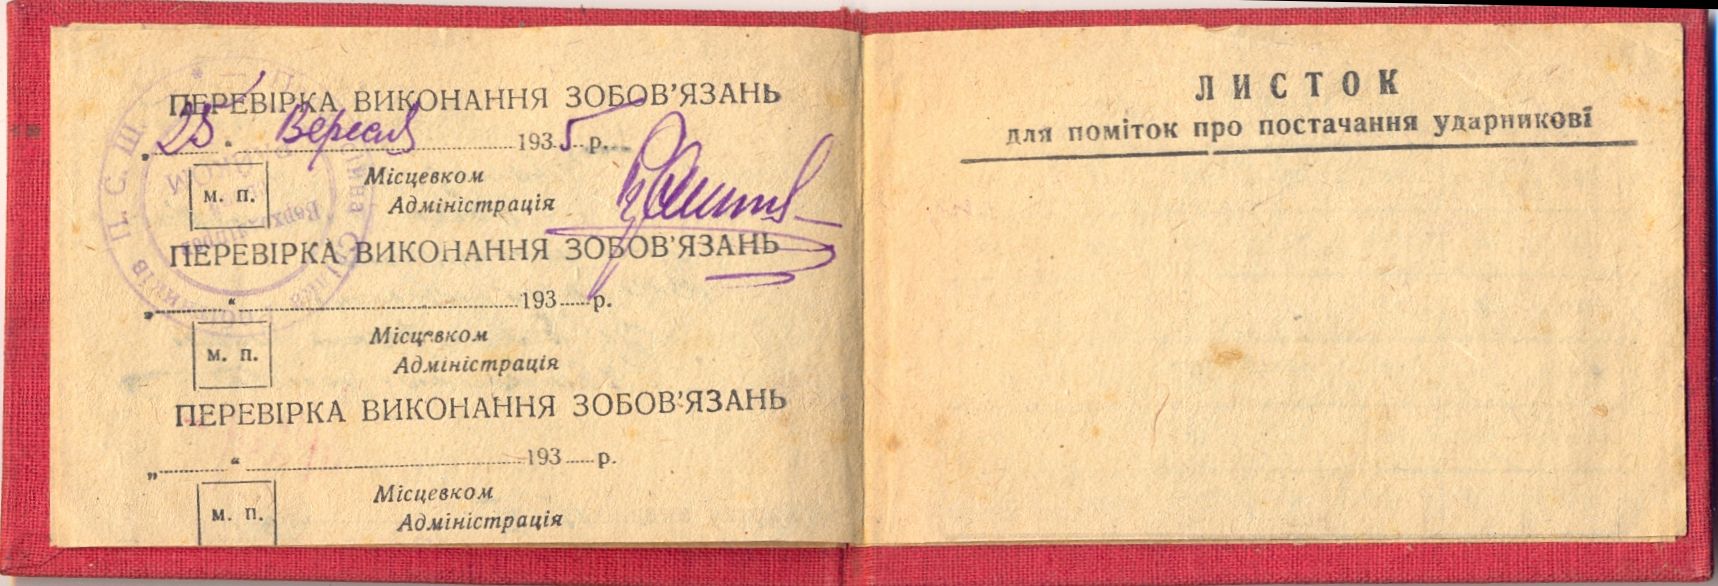 ПЕРЕВІРКА ВИКОНАННЯ ЗОБОВ'ЯЗАНЬ
„25“ Вересня 1935 р.
м. п.
Місцевком
Адміністрація
ПЕРЕВІРКА ВИКОНАННЯ ЗОБОВ'ЯЗАНЬ
„ “ 193 р.
м. п.
Місцевком
Адміністрація
ПЕРЕВІРКА ВИКОНАННЯ ЗОБОВ'ЯЗАНЬ
„ “ 193 р.
м. п.
Місцевком
Адміністрація
ЛИСТОК
для поміток про постачання ударникові